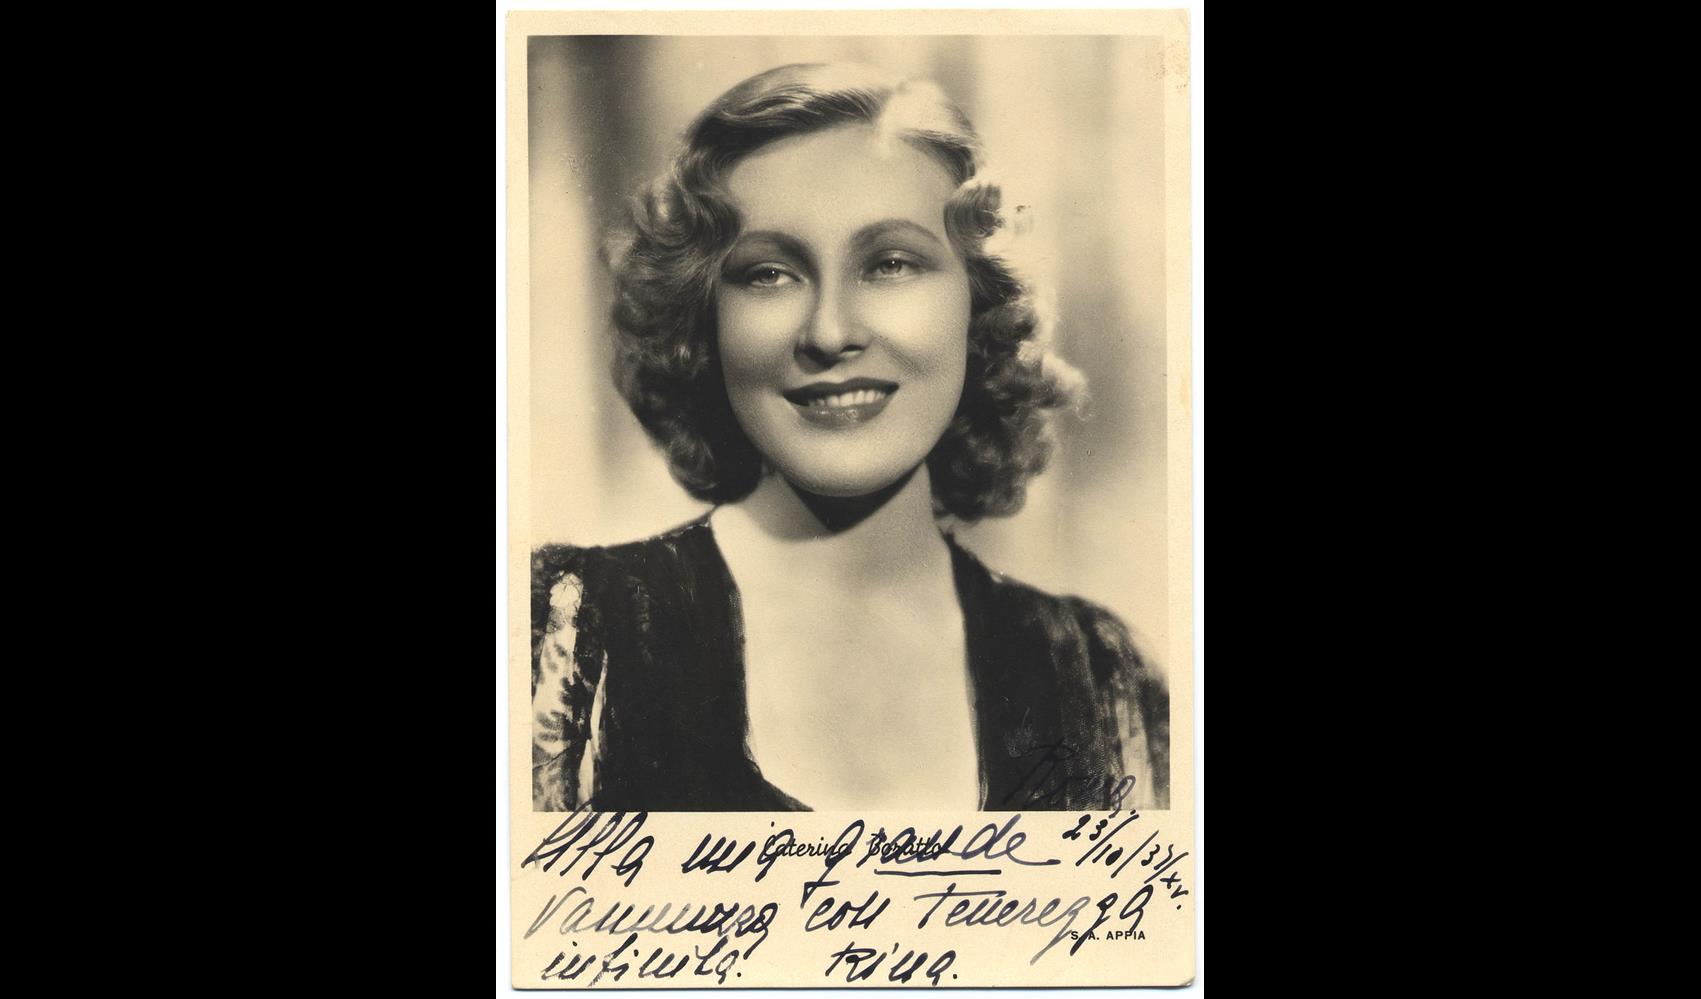 Roma,
23/10/37/XV.
Alla mia grande
Caterina Boratto
Vannuzza con Tenerezza
S. A. APPIA
infinita. Rina.